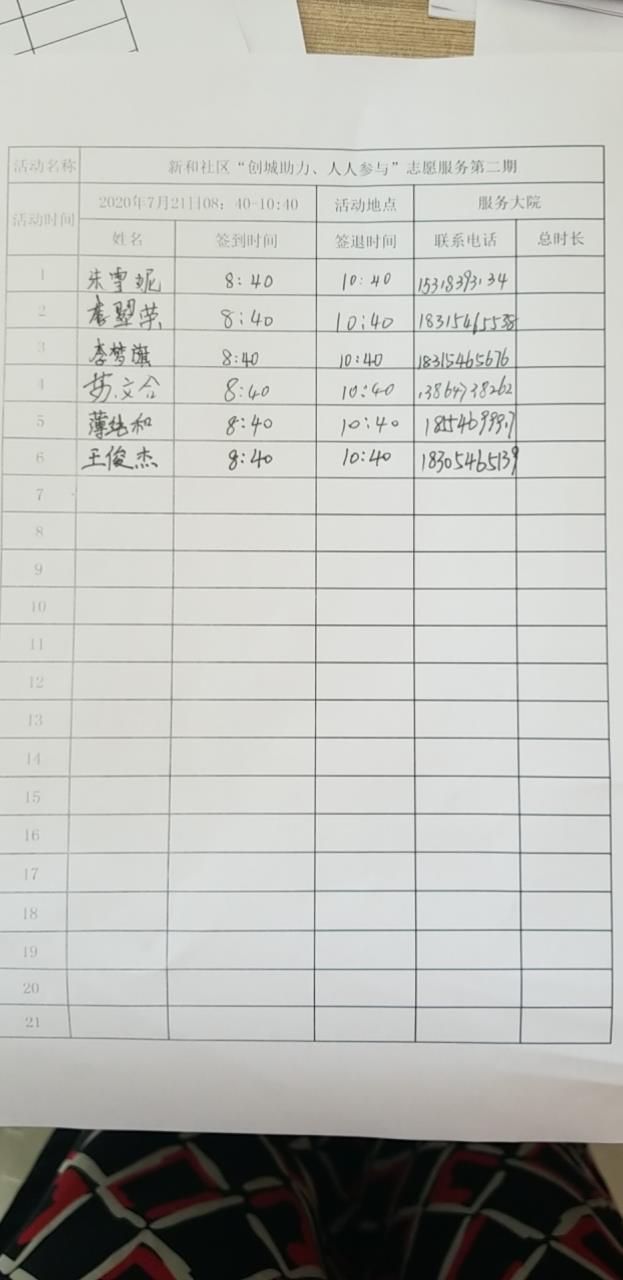 活动名称 新和社区“创城助力、人人参与”志愿服务第二期
活动时间 2020年7月21日08：40-10:40 活动地点 服务大院
姓名 签到时间 签退时间 联系电话 总时长
1 朱雪妮 8:40 10:40
2 8:40 10:40
3 李梦旗 8:40 10:40 18315465676
4 苏文合 8:40 10:40 13864738262
5 薄纯和 8:40 10:40
6 王俊杰 8:40 10:40 18305465139
7
8
9
10
11
12
13
14
15
16
17
18
19
20
21